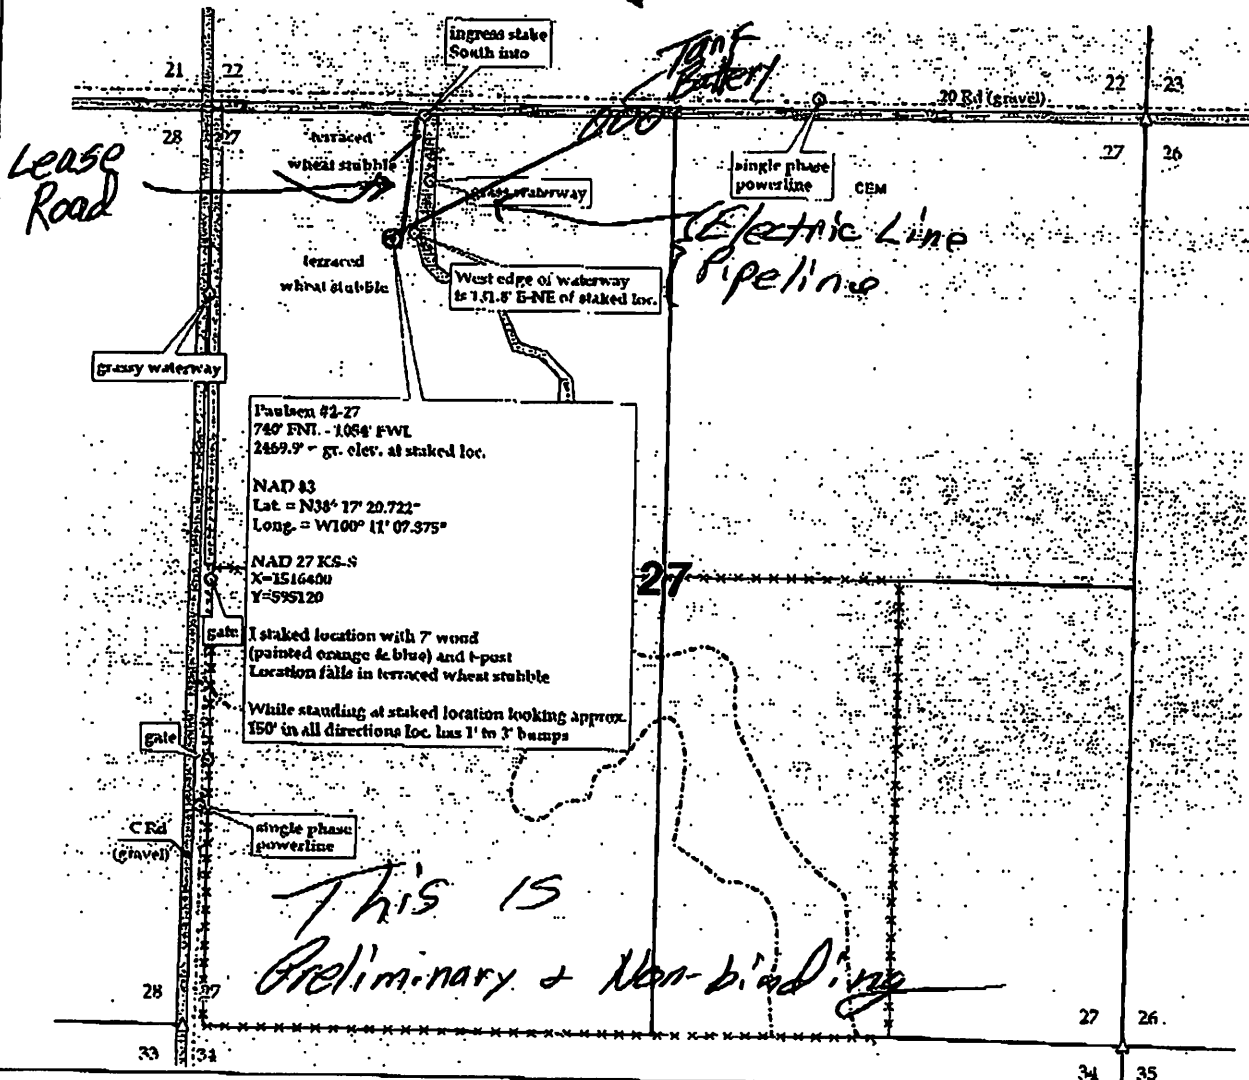 ingress stake
South into
Tank
Battery
21 22
22 23
20 Rd (gravel)
28 27
27 26
terraced
wheat stubble
single phase
powerline
CEM
Lease
Road
grass waterway
Electric Line
Pipeline
terraced
wheat stubble
West edge of waterway
is 131.8' E-NE of staked loc.
grassy waterway
Paulsen #2-27
740' FNL - 1054' FWL
2469.9' = gr. elev. at staked loc.
NAD 83
Lat. = N38° 17' 20.722"
Long. = W100° 11' 07.375"
NAD 27 KS-S
X=1516400
Y=595120
27
gate
I staked location with 7' wood
(painted orange & blue) and t-post
Location falls in terraced wheat stubble
While standing at staked location looking approx.
150' in all directions loc. has 1' to 3' bumps
gate
C Rd
(gravel)
single phase
powerline
This is
Preliminary & Non-binding
28 27
27 26
33 34
34 35